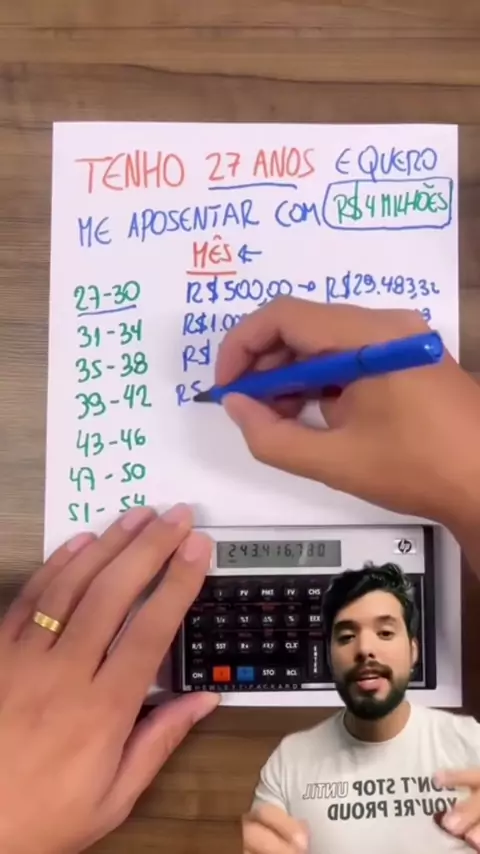 TENHO 27 ANOS E QUERO
ME APOSENTAR COM R$4 MILHÕES
MÊS ←
27-30 R$500,00 → R$29.483,32
31-34 R$1.00
35-38 R$
39-42 R$
43-46
47-50
51-54
243,416,730
hp
i PV PMT FV CHS
1/x %T Δ% % EEX
R/S SST R↓ x≷y CLX ENTER
ON f g STO RCL
HEWLETT·PACKARD
DON'T STOP UNTIL
YOU'RE PROUD